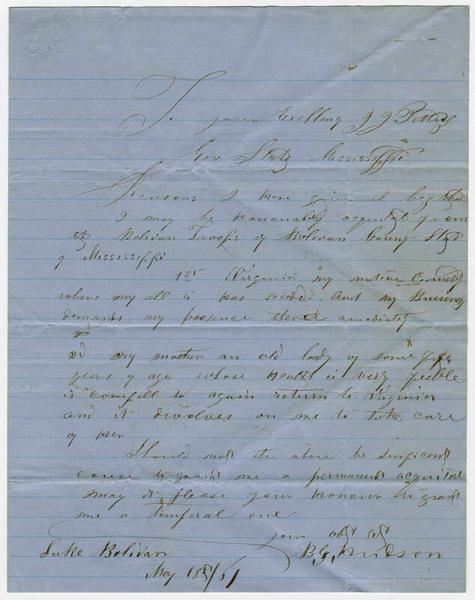 To your Excellency J J Pettus
Gov State Mississippi
Reasons I have given I beg that
I may be honorably acquited from
Bolivar Troops of Bolivar County State
of Mississippi
1st Virginia my native Country
where my all is has seceded and my Business
demands my presence there
2d My mother an old lady of some
years of age whose health is very feeble
is compelld to again return to Virginia
and it divolves on me to take care
of her
Should not the above be surficent
cause to grant me a permanent acquital
may it please your honour to grant
me a temperal one
your obt st
Lake Bolivar B G, Hudson
May /61